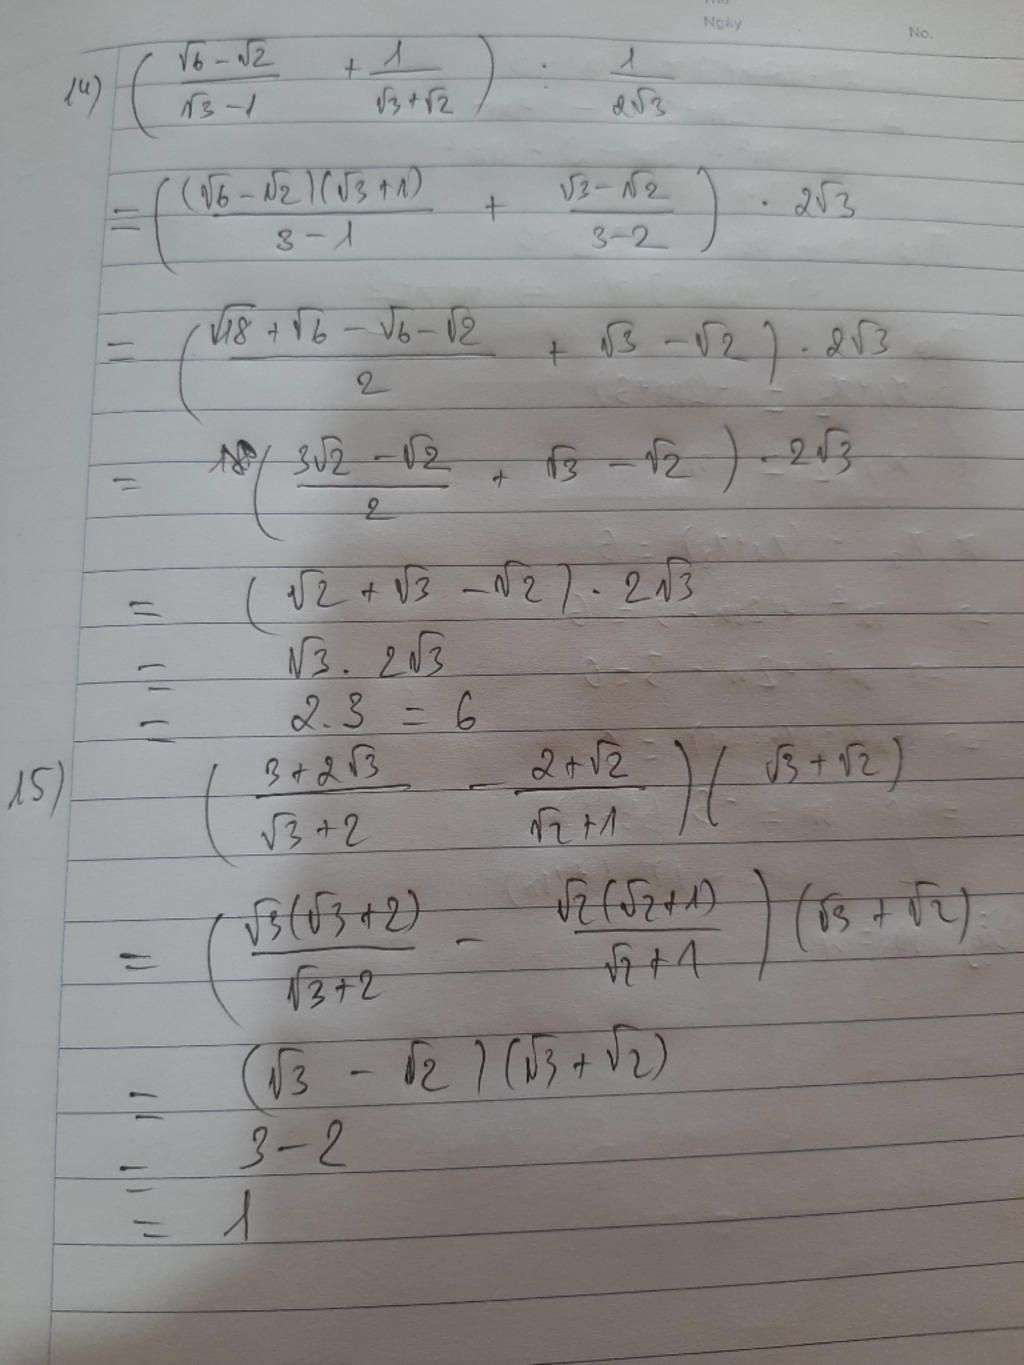 Ngày No.
14) ( (√6 - √2)/(√3 - 1) + 1/(√3 + √2) ) : 1/(2√3)
= ( (√6 - √2)(√3 + 1)/(3 - 1) + (√3 - √2)/(3 - 2) ) . 2√3
= ( (√18 + √6 - √6 - √2)/2 + √3 - √2 ) . 2√3
= ( (3√2 - √2)/2 + √3 - √2 ) . 2√3
= ( √2 + √3 - √2 ) . 2√3
= √3 . 2√3
= 2.3 = 6
15) ( (3 + 2√3)/(√3 + 2) - (2 + √2)/(√2 + 1) ) ( √3 + √2 )
= ( √3(√3 + 2)/(√3 + 2) - √2(√2 + 1)/(√2 + 1) ) (√3 + √2)
= (√3 - √2) (√3 + √2)
= 3 - 2
= 1